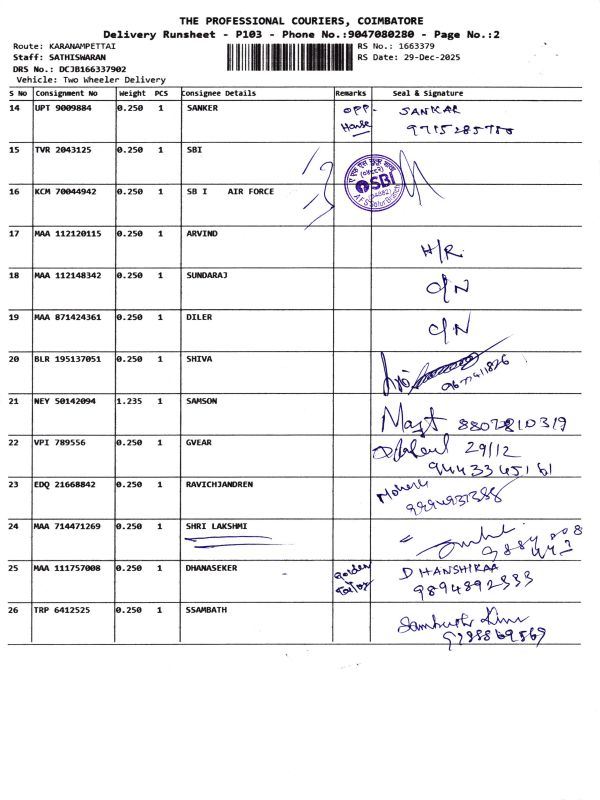 THE PROFESSIONAL COURIERS, COIMBATORE
Delivery Runsheet - P103 - Phone No.:9047080280 - Page No.:2
Route: KARANAMPETTAI RS No.: 1663379
Staff: SATHISWARAN RS Date: 29-Dec-2025
DRS No.: DCJB166337902
Vehicle: Two Wheeler Delivery
S No Consignment No Weight PCS Consignee Details Remarks Seal & Signature
14 UPT 9009884 0.250 1 SANKER OPP- SANKAR
House
15 TVR 2043125 0.250 1 SBI
SBI
16 KCM 70044942 0.250 1 SB I AIR FORCE
17 MAA 112120115 0.250 1 ARVIND H/R
18 MAA 112148342 0.250 1 SUNDARAJ O/N
19 MAA 871424361 0.250 1 DILER O/N
20 BLR 195137051 0.250 1 SHIVA
21 NEY 50142094 1.235 1 SAMSON 8807810319
22 VPI 789556 0.250 1 GVEAR 29/12
9443345161
23 EDQ 21668842 0.250 1 RAVICHJANDREN
24 MAA 714471269 0.250 1 SHRI LAKSHMI
25 MAA 111757008 0.250 1 DHANASEKER Golden DHANSHIKAA
9894892333
26 TRP 6412525 0.250 1 SSAMBATH